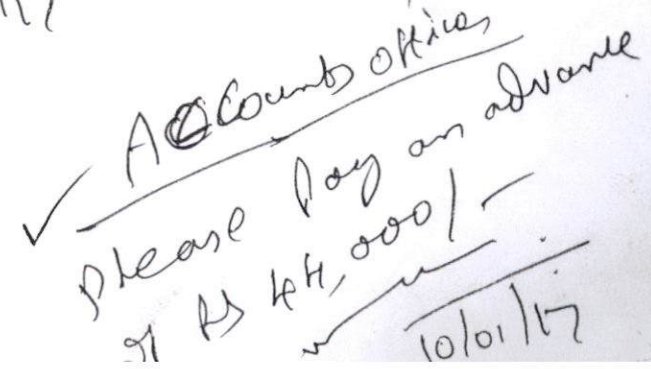 Accounts officer
Please Pay an advance
of Rs 44,000/-
10/01/17